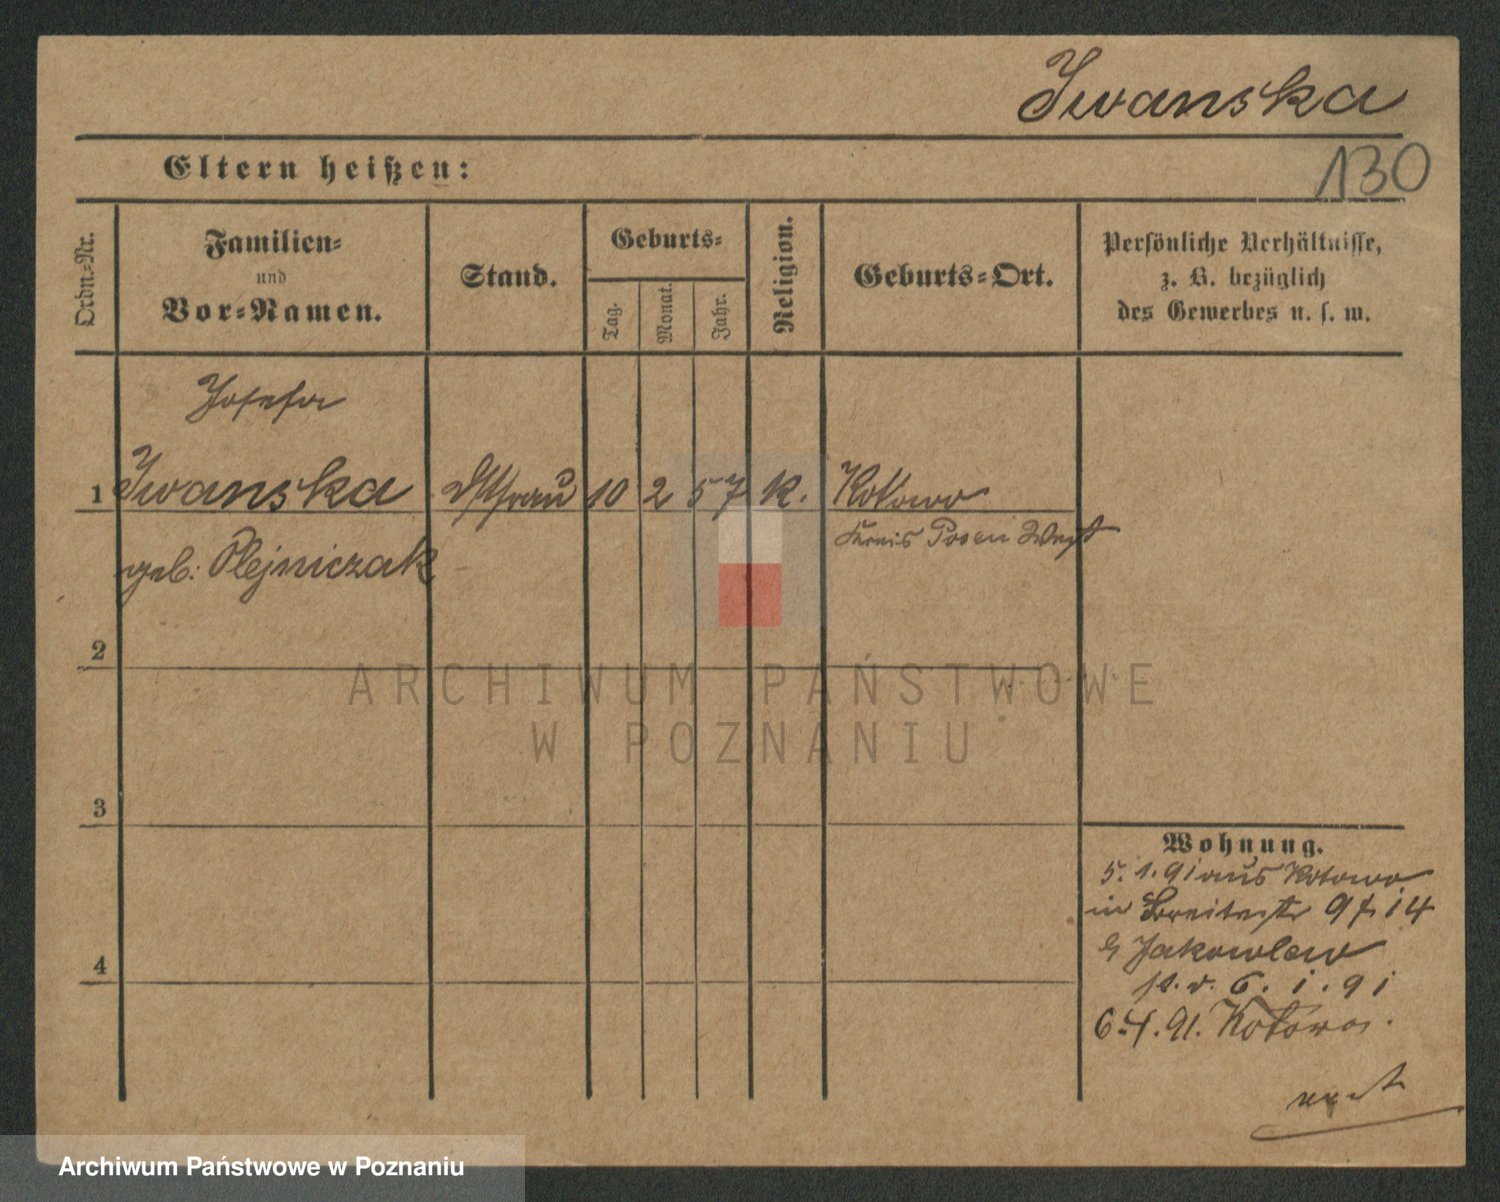 Iwanska
Eltern heißen:
130
Ordn.-Nr.
Familien-
und
Vor-Namen.
Stand.
Geburts-
Tag.
Monat.
Jahr.
Religion.
Geburts-Ort.
Persönliche Verhältnisse,
z. B. bezüglich
des Gewerbes u. s. w.
Josefa
1 Iwanska 10 2 57 K. Kotowo
Kreis Posen West
geb: Olejniczak
2
ARCHIWUM PAŃSTWOWE
W POZNANIU
3
Wohnung.
5. 1. 91 aus Kotowo
in Breitestr 9 14
Jakowlew
6. 1. 91
4
6.4.91. Kotowo.
Archiwum Państwowe w Poznaniu